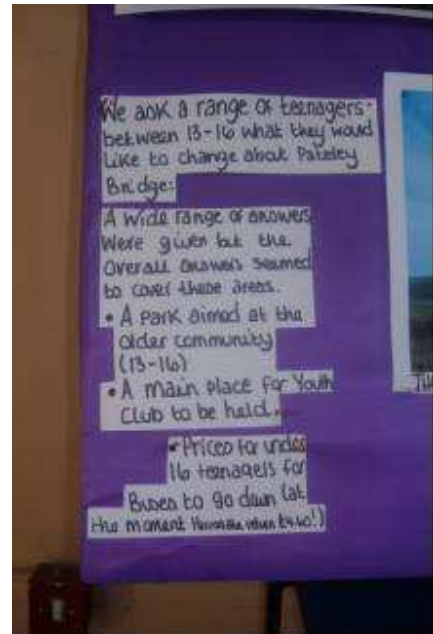 We ask a range of teenagers
between 13-16 what they would
like to change about Pateley
Bridge:
A wide range of answers
were given but the
overall answers seemed
to cover these areas.
• A park aimed at the
older community
(13-16)
• A main place for Youth
Club to be held.
• Prices for under
16 teenagers for
Buses to go down (at
the moment Harrogate return £4.60!)